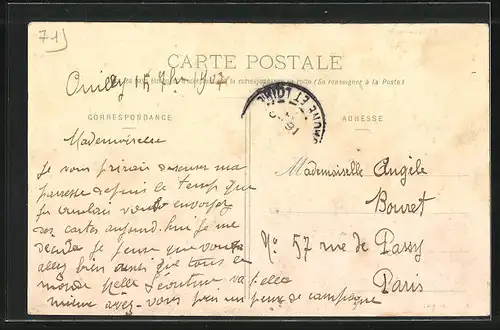 71)
CARTE POSTALE
15 7bre 1907
la correspondance au recto (Se renseigner à la Poste)
CORRESPONDANCE
ADRESSE
ONE ET LOIRE
Mademoiselle
Je vous prierais d'excuser ma
paresse depuis le temps que
je voulais vous envoyer
ses cartes aujourd'hui je me
décide je pense que vous
allez bien ainsi que tous le
monde Melle va t'elle
mieux avez-vous pris un peu de campagne
Mademoiselle Angèle
Bouret
No 57 rue de Passy
Paris